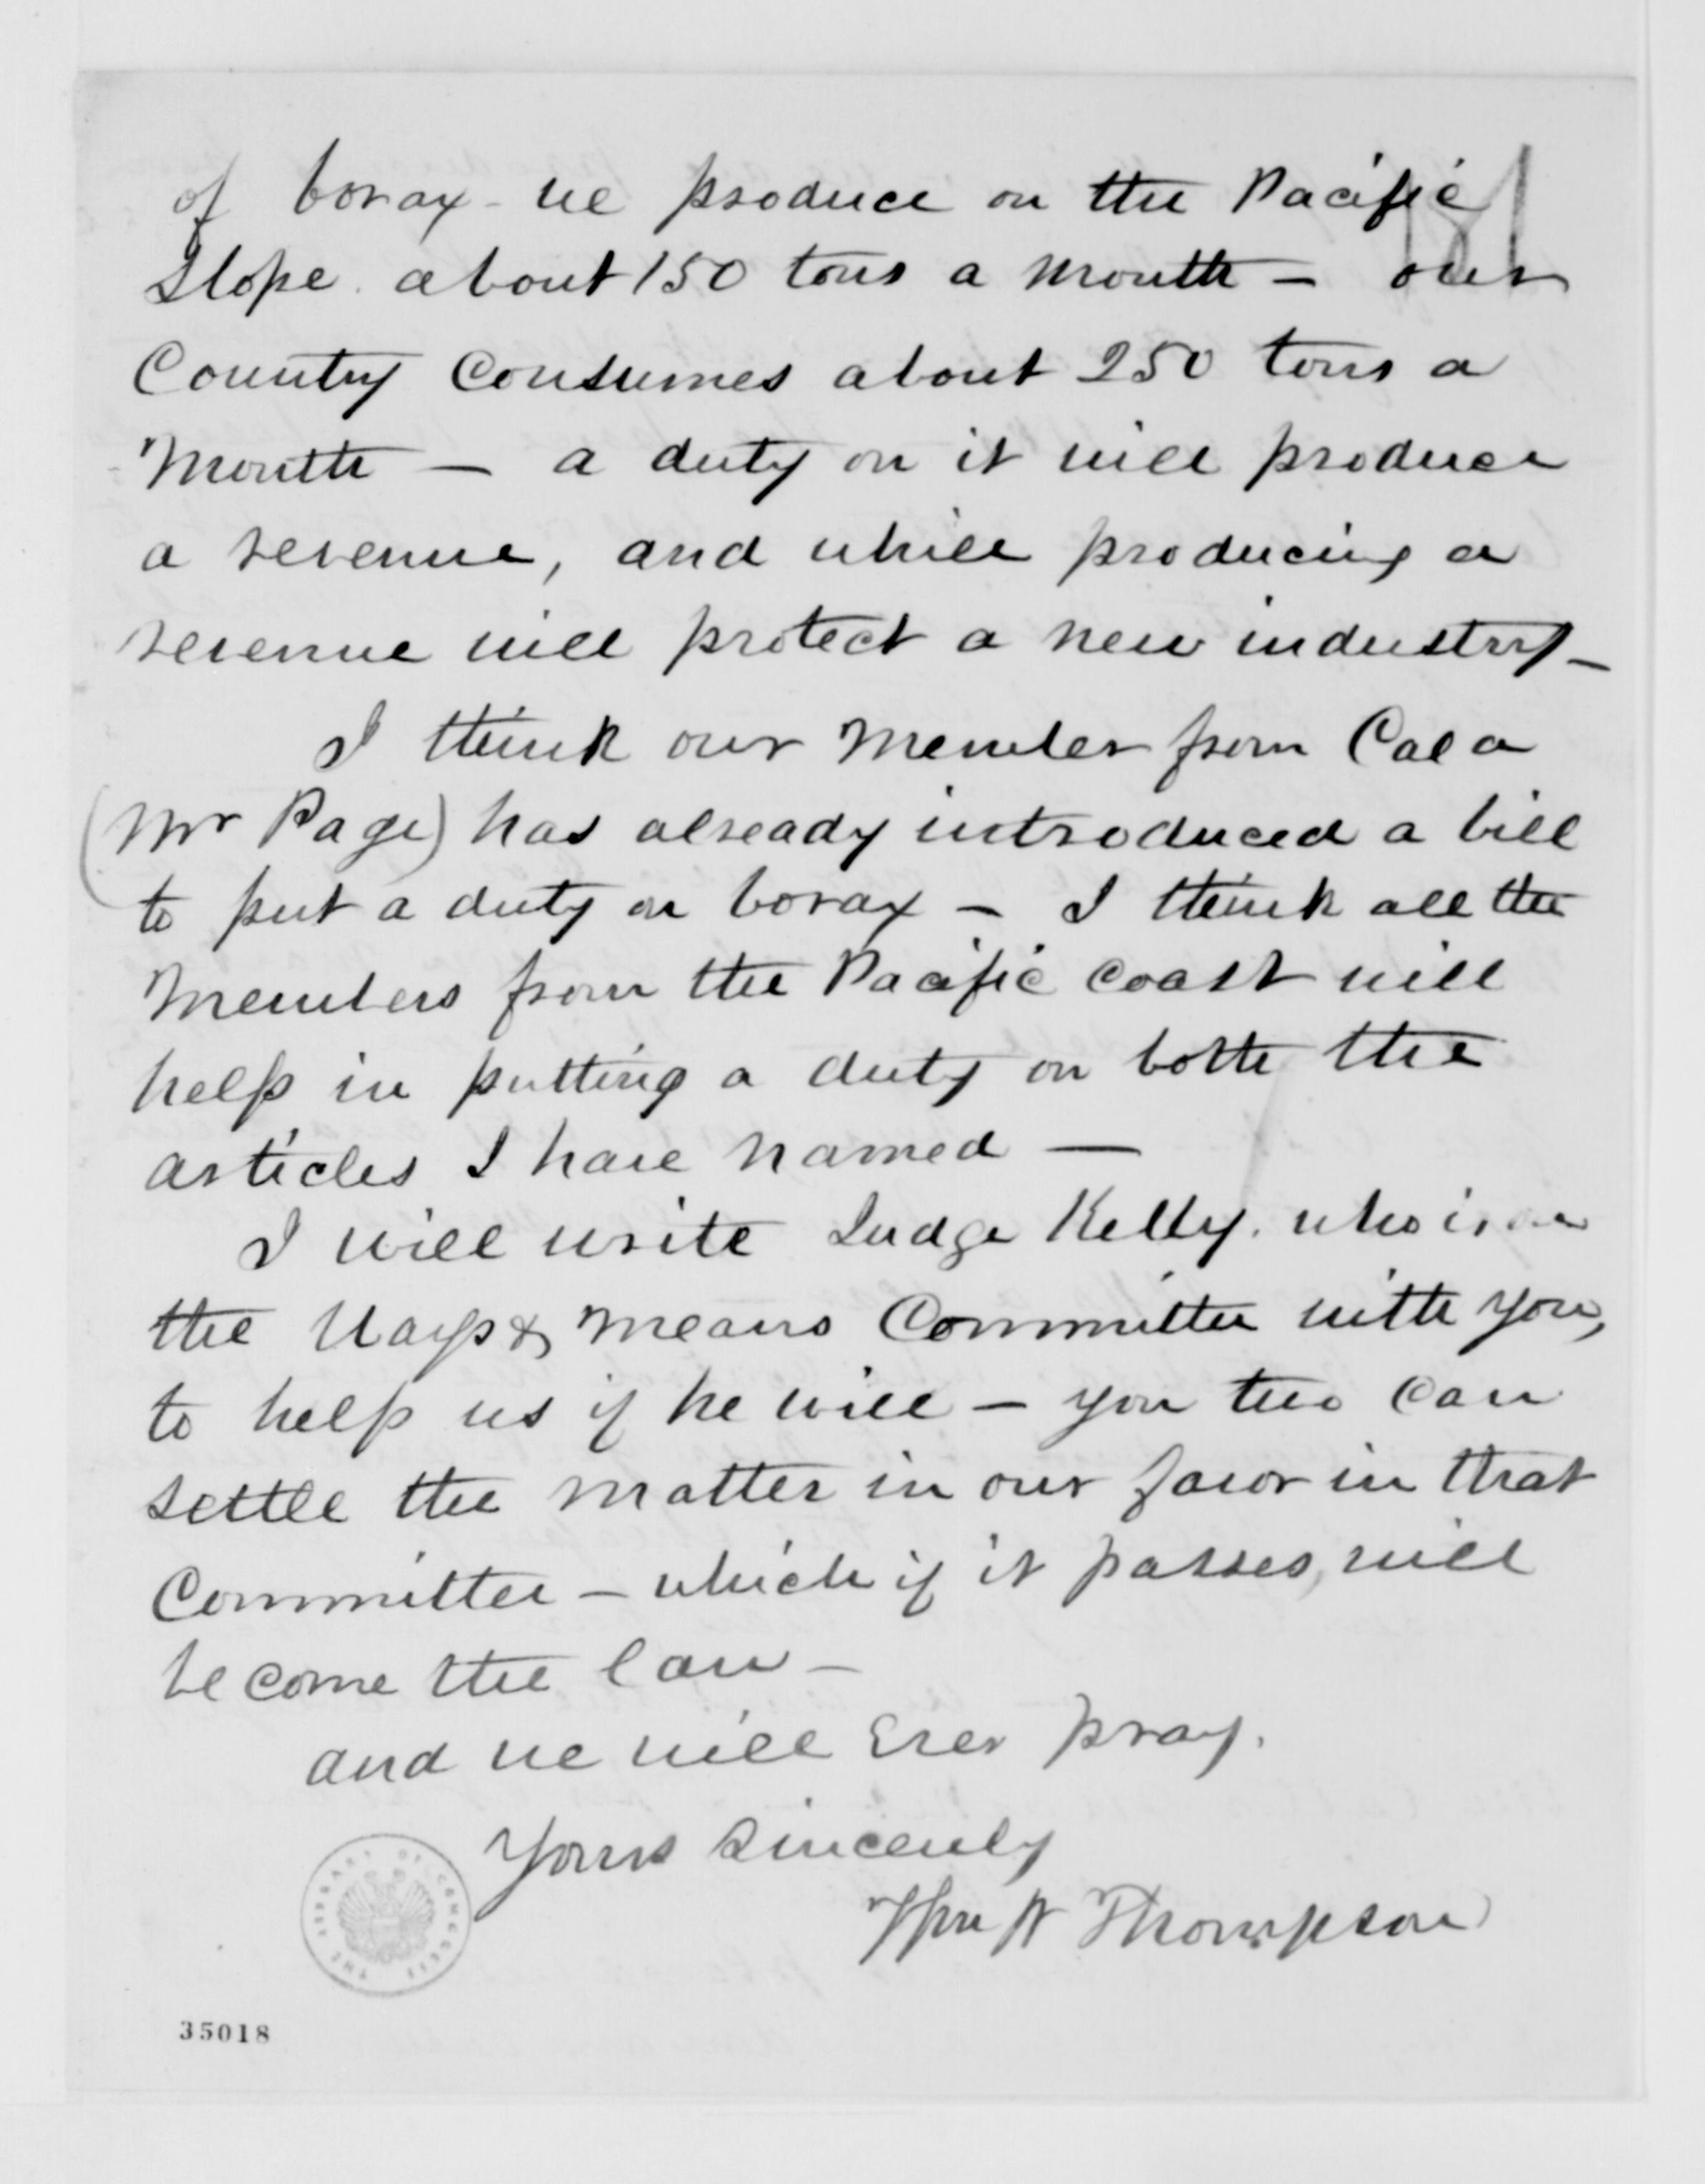 of borax - we produce on the Pacific
181
Slope. about 150 tons a month – our
Country Consumes about 250 tons a
Month – a duty on it will produce
a revenue, and while producing a
revenue will protect a new industry –
I think our Member from Cala
(Mr Page) has already introduced a bill
to put a duty on borax – I think all the
Members from the Pacific Coast will
help in putting a duty on both the
articles I have named —
I will write Judge Kelly. who is on
the Ways & Means Committee with you,
to help us if he will – you two can
settle the matter in our favor in that
Committee – which if it passes, will
become the law –
and we will Ever pray.
Yours Sincerely
Thompson
THE LIBRARY OF CONGRESS
35018